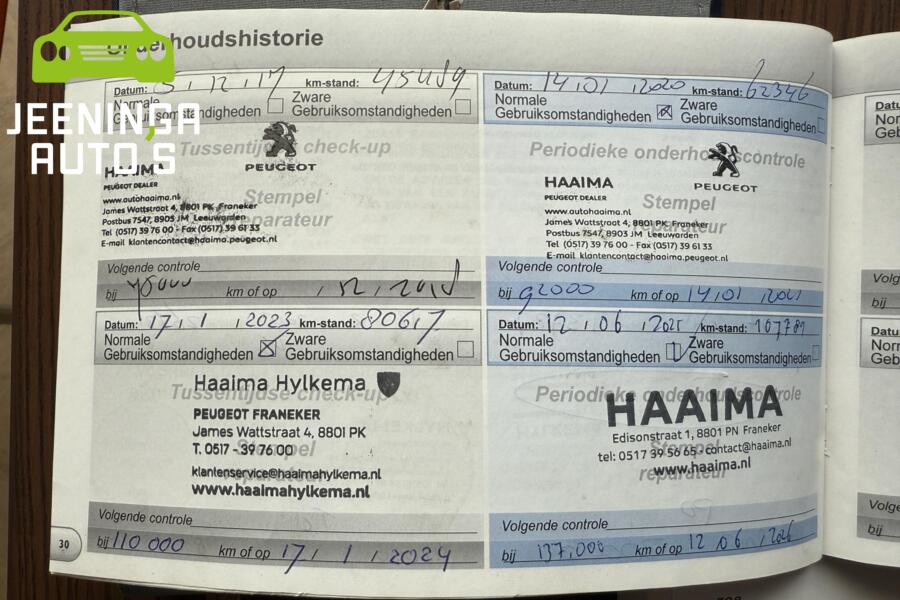 Onderhoudshistorie
JEENINGA
AUTO,S
Datum: , 12, 17 km-stand: 45489
Normale
Gebruiksomstandigheden
Zware
Gebruiksomstandigheden
Tussentijdse check-up
PEUGEOT
HAAIMA
PEUGEOT DEALER
Stempel
reparateur
www.autohaaima.nl
James Wattstraat 4, 8801 PK Franeker
Postbus 7547, 8903 JM Leeuwarden
Tel (0517) 39 76 00 - Fax (0517) 39 61 33
E-mail klantencontact@haaima.peugeot.nl
Volgende controle
bij km of op , 12,
Datum: 14,01 ,2020 km-stand: 62346
Normale
Gebruiksomstandigheden
Zware
Gebruiksomstandigheden
Periodieke onderhoudscontrole
PEUGEOT
HAAIMA
PEUGEOT DEALER
Stempel
reparateur
www.autohaaima.nl
James Wattstraat 4, 8801 PK Franeker
Postbus 7547, 8903 JM Leeuwarden
Tel (0517) 39 76 00 - Fax (0517) 39 61 33
E-mail klantencontact@haaima.peugeot.nl
Volgende controle
bij 92000 km of op 14,01 ,2021
Datum: 17, 1 ,2023 km-stand:
Normale
Gebruiksomstandigheden
Zware
Gebruiksomstandigheden
Tussentijdse check-up
Haaima Hylkema
PEUGEOT FRANEKER
James Wattstraat 4, 8801 PK
T. 0517 - 39 76 00
Stempel
reparateur
klantenservice@haaimahylkema.nl
www.haaimahylkema.nl
Volgende controle
bij 110 000 km of op 17, 1 ,2024
Datum: 12, 06 ,2025 km-stand: 107781
Normale
Gebruiksomstandigheden
Zware
Gebruiksomstandigheden
Periodieke onderhoudscontrole
HAAIMA
Edisonstraat 1, 8801 PN Franeker
Stempel
tel: 0517 39 56 65 - contact@haaima.nl
www.haaima.nl
reparateur
Volgende controle
bij 137,000 km of op 12, 06 ,2026
30
Datu
Nor
Geb
Volg
bij
Datu
Norm
Geb
Volge
bij